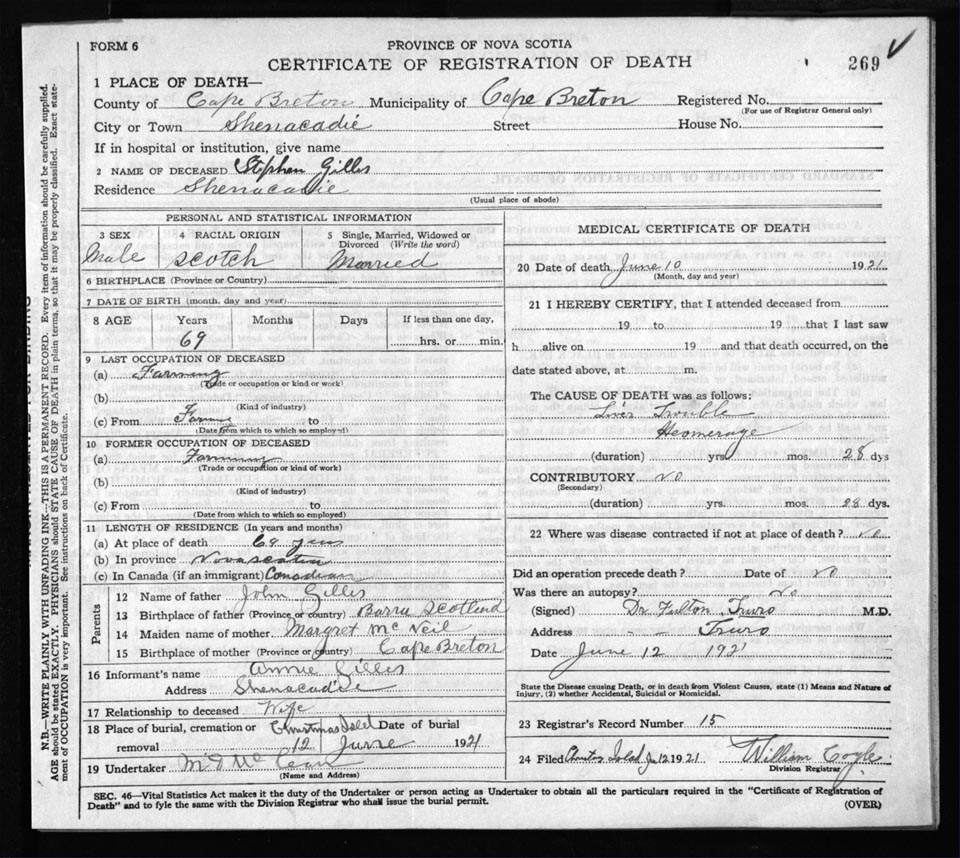 FORM 6
PROVINCE OF NOVA SCOTIA
CERTIFICATE OF REGISTRATION OF DEATH
269
1 PLACE OF DEATH—
County of Cape Breton Municipality of Cape Breton Registered No.
(For use of Registrar General only)
City or Town Shenacadie Street House No.
If in hospital or institution, give name
2 NAME OF DECEASED Stephen Gillis
Residence Shenacadie
(Usual place of abode)
PERSONAL AND STATISTICAL INFORMATION
3 SEX 4 RACIAL ORIGIN 5 Single, Married, Widowed or Divorced (Write the word)
Male Scotch Married
6 BIRTHPLACE (Province or Country)
7 DATE OF BIRTH (month, day and year)
8 AGE Years Months Days If less than one day,
69 hrs. or min.
9 LAST OCCUPATION OF DECEASED
(a) Farming
(Trade or occupation or kind or work)
(b)
(Kind of industry)
(c) From Farming to
(Date from which to which so employed)
10 FORMER OCCUPATION OF DECEASED
(a) Farming
(Trade or occupation or kind of work)
(b)
(Kind of industry)
(c) From to
(Date from which to which so employed)
11 LENGTH OF RESIDENCE (In years and months)
(a) At place of death 69
(b) In province Novascotia
(c) In Canada (if an immigrant) Canadian
Parents
12 Name of father John Gillis
13 Birthplace of father (Province or country) Barra Scotland
14 Maiden name of mother Margret McNeil
15 Birthplace of mother (Province or country) Cape Breton
16 Informant's name Annie Gillis
Address Shenacadie
17 Relationship to deceased Wife
18 Place of burial, cremation or removal Christmas Isld Date of burial
12 June 1921
19 Undertaker
(Name and Address)
MEDICAL CERTIFICATE OF DEATH
20 Date of death June 10 1921
(Month, day and year)
21 I HEREBY CERTIFY, that I attended deceased from
19 to 19 that I last saw
h alive on 19 and that death occurred, on the
date stated above, at m.
The CAUSE OF DEATH was as follows:
Liver Trouble
Hesmerage
(duration) yrs. mos. 28 dys
CONTRIBUTORY No
(Secondary)
(duration) yrs. mos. 28 dys.
22 Where was disease contracted if not at place of death? No
Did an operation precede death? Date of No
Was there an autopsy? No
(Signed) Dr Fulton Truro M.D.
Address Truro
Date June 12 1921
State the Disease causing Death, or in death from Violent Causes, state (1) Means and Nature of
Injury, (2) whether Accidental, Suicidal or Homicidal.
23 Registrar's Record Number 15
24 Filed 12 1921 William Coyle
Division Registrar
SEC. 46—Vital Statistics Act makes it the duty of the Undertaker or person acting as Undertaker to obtain all the particulars required in the "Certificate of Registration of
Death" and to fyle the same with the Division Registrar who shall issue the burial permit.
(OVER)
N.B.—WRITE PLAINLY WITH UNFADING INK—THIS IS A PERMANENT RECORD. Every item of information should be carefully supplied.
AGE should be stated EXACTLY. PHYSICIANS should STATE CAUSE OF DEATH in plain terms, so that it may be properly classified. Exact state-
ment of OCCUPATION is very important. See instructions on back of Certificate.